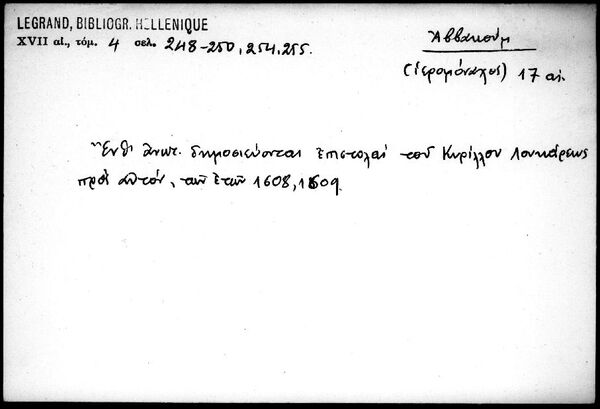 LEGRAND, BIBLIOGR. HELLENIQUE
XVII αἰ., τόμ. 4 σελ. 248-250, 254, 255.
Ἀββακούμ
(ἱερομόναχος) 17 αἰ.
Ἔνθ' ἀνωτ. δημοσιεύονται ἐπιστολαὶ τοῦ Κυρίλλου Λουκάρεως
πρὸς αὐτόν, τῶν ἐτῶν 1608, 1609.